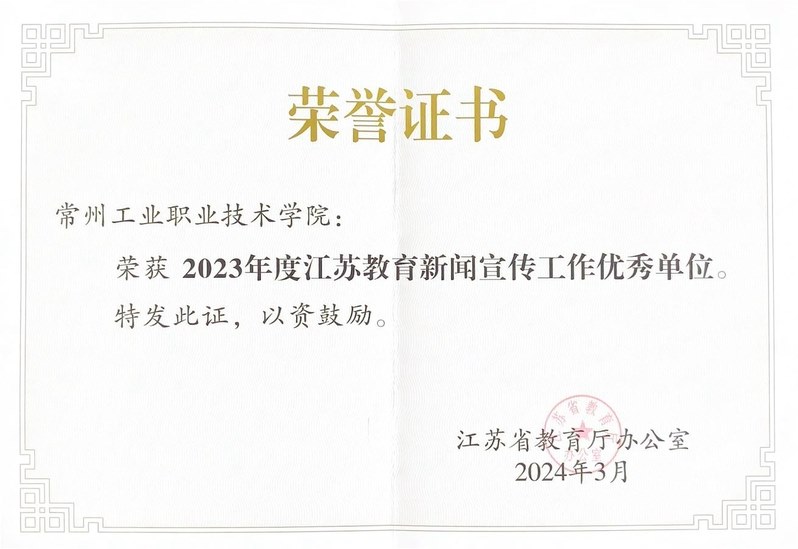 荣誉证书
常州工业职业技术学院：
荣获 2023年度江苏教育新闻宣传工作优秀单位。
特发此证，以资鼓励。
江苏省教育厅办公室
2024年3月